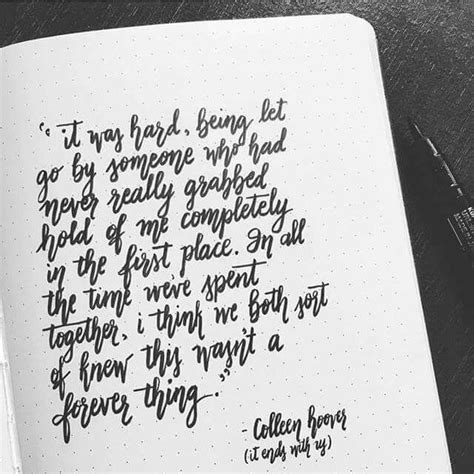 "it was hard, being let
go by someone who had
never really grabbed
hold of me completely
in the first place. In all
the time we've spent
together, i think we both sort
of knew this wasn't a
forever thing."
- Colleen hoover
(it ends with us)